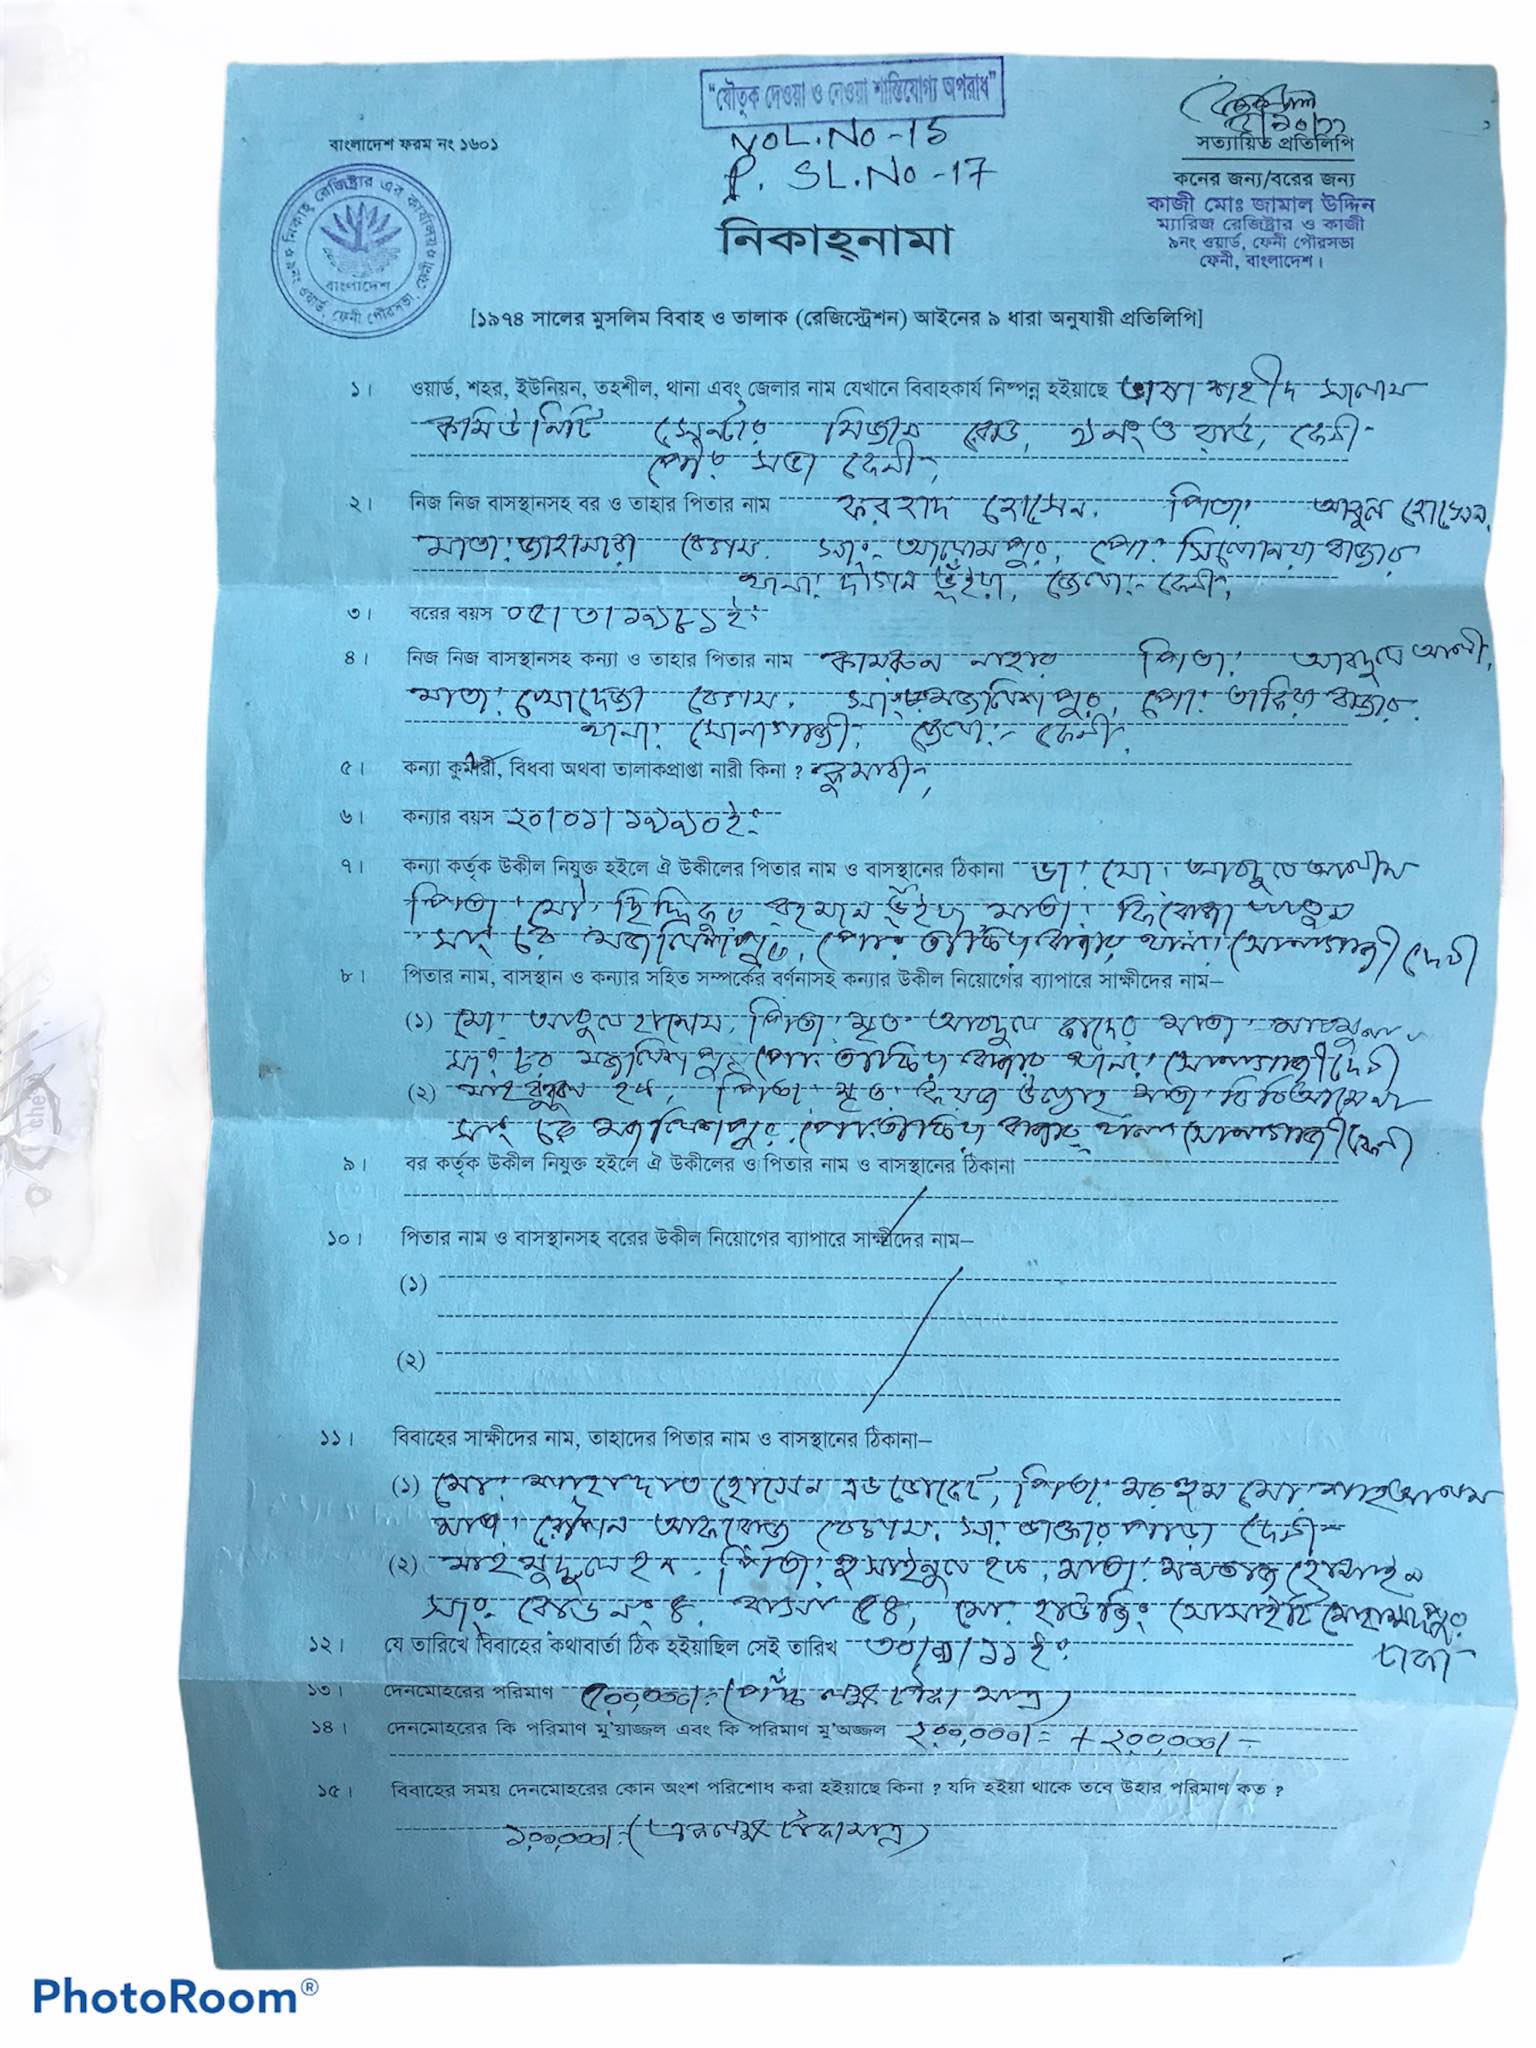 "যৌতুক দেওয়া ও নেওয়া শাস্তিযোগ্য অপরাধ"
বাংলাদেশ ফরম নং ১৬০১
VOL.NO-15
P. SL.No-17
সত্যায়িত প্রতিলিপি
কনের জন্য/বরের জন্য
কাজী মোঃ জামাল উদ্দিন
ম্যারিজ রেজিষ্ট্রার ও কাজী
৯নং ওয়ার্ড, ফেনী পৌরসভা
ফেনী, বাংলাদেশ।
নিকাহ্ রেজিষ্ট্রার এর কার্যালয়
৯নং ওয়ার্ড, ফেনী পৌরসভা, ফেনী
বাংলাদেশ
নিকাহ্‌নামা
[১৯৭৪ সালের মুসলিম বিবাহ ও তালাক (রেজিস্ট্রেশন) আইনের ৯ ধারা অনুযায়ী প্রতিলিপি]
১। ওয়ার্ড, শহর, ইউনিয়ন, তহশীল, থানা এবং জেলার নাম যেখানে বিবাহকার্য নিষ্পন্ন হইয়াছে ভাষা শহীদ সালাম
কমিউনিটি সেন্টার মিজান রোড, ৯নং ওয়ার্ড, ফেনী
পৌর সভা ফেনী,
২। নিজ নিজ বাসস্থানসহ বর ও তাহার পিতার নাম ফরহাদ হোসেন. পিতা: আবুল হোসেন,
মাতা: জাহানারা বেগম. সাং- আলামপুর, পো: সিলোনয়া বাজার
থানা: দাগন ভূঁইয়া, জেলা:- ফেনী,
৩। বরের বয়স ০৫/৩/১৯৮১ইং
৪। নিজ নিজ বাসস্থানসহ কন্যা ও তাহার পিতার নাম কামরুন নাহার পিতা: আবদুল আলী,
মাতা: খোদেজা বেগম. সাং চরমজলিশপুর, পো: তাকিয়া বাজার.
থানা: সোনাগাজী, জেলা:- ফেনী,
৫। কন্যা কুমারী, বিধবা অথবা তালাকপ্রাপ্তা নারী কিনা ? কুমারী,
৬। কন্যার বয়স ২০/০১/১৯৯০ইং
৭। কন্যা কর্তৃক উকীল নিযুক্ত হইলে ঐ উকীলের পিতার নাম ও বাসস্থানের ঠিকানা ডা: মো: আবদুল আলীম
পিতা: মো: ছিদ্দিকুর রহমান ভূঁইয়া মাতা: ফিরোজা খাতুন
সাং চর মজলিশপুর, পো: তাকিয়া বাজার, থানা: সোনাগাজী ফেনী
৮। পিতার নাম, বাসস্থান ও কন্যার সহিত সম্পর্কের বর্ণনাসহ কন্যার উকীল নিয়োগের ব্যাপারে সাক্ষীদের নাম—
(১) মো: আবুল হাসেম, পিতা: মৃত আবদুল কাদের মাতা:
সাং চর মজলিশপুর পো: তাকিয়া বাজার থানা: সোনাগাজী ফেনী
(২) মাহবুবুল হক, পিতা: মৃত উল্যাহ মাতা বিবি আমেনা
সাং চর মজলিশপুর, পো: তাকিয়া বাজার থানা সোনাগাজী ফেনী
৯। বর কর্তৃক উকীল নিযুক্ত হইলে ঐ উকীলের ও পিতার নাম ও বাসস্থানের ঠিকানা
১০। পিতার নাম ও বাসস্থানসহ বরের উকীল নিয়োগের ব্যাপারে সাক্ষীদের নাম—
(১)
(২)
১১। বিবাহের সাক্ষীদের নাম, তাহাদের পিতার নাম ও বাসস্থানের ঠিকানা—
(১) মো: শাহাদাত হোসেন এডভোকেট, পিতা: মরহুম মো: শাহ আলম
মাতা: রৌশন আফরোজ বেগম. সাং ডাক্তার পাড়া ফেনী
(২) মাহমুদুল হক. পিতা: হুসাইনুল হক, মাতা: মমতাজ হোসাইন
সাং রোড নং ৪. বাসা ৫৪, মো: হাউজিং সোসাইটি মোহাম্মদপুর
ঢাকা
১২। যে তারিখে বিবাহের কথাবার্তা ঠিক হইয়াছিল সেই তারিখ ৩০/৯/১১ইং
১৩। দেনমোহরের পরিমাণ ৫০০,০০০/= (পাঁচ লক্ষ টাকা মাত্র)
১৪। দেনমোহরের কি পরিমাণ মু'য়াজ্জল এবং কি পরিমাণ মু'অজ্জল ২০০,০০০/= + ২০০,০০০/=
১৫। বিবাহের সময় দেনমোহরের কোন অংশ পরিশোধ করা হইয়াছে কিনা ? যদি হইয়া থাকে তবে উহার পরিমাণ কত ?
১০০,০০০/= (একলক্ষ টাকা মাত্র)
PhotoRoom®